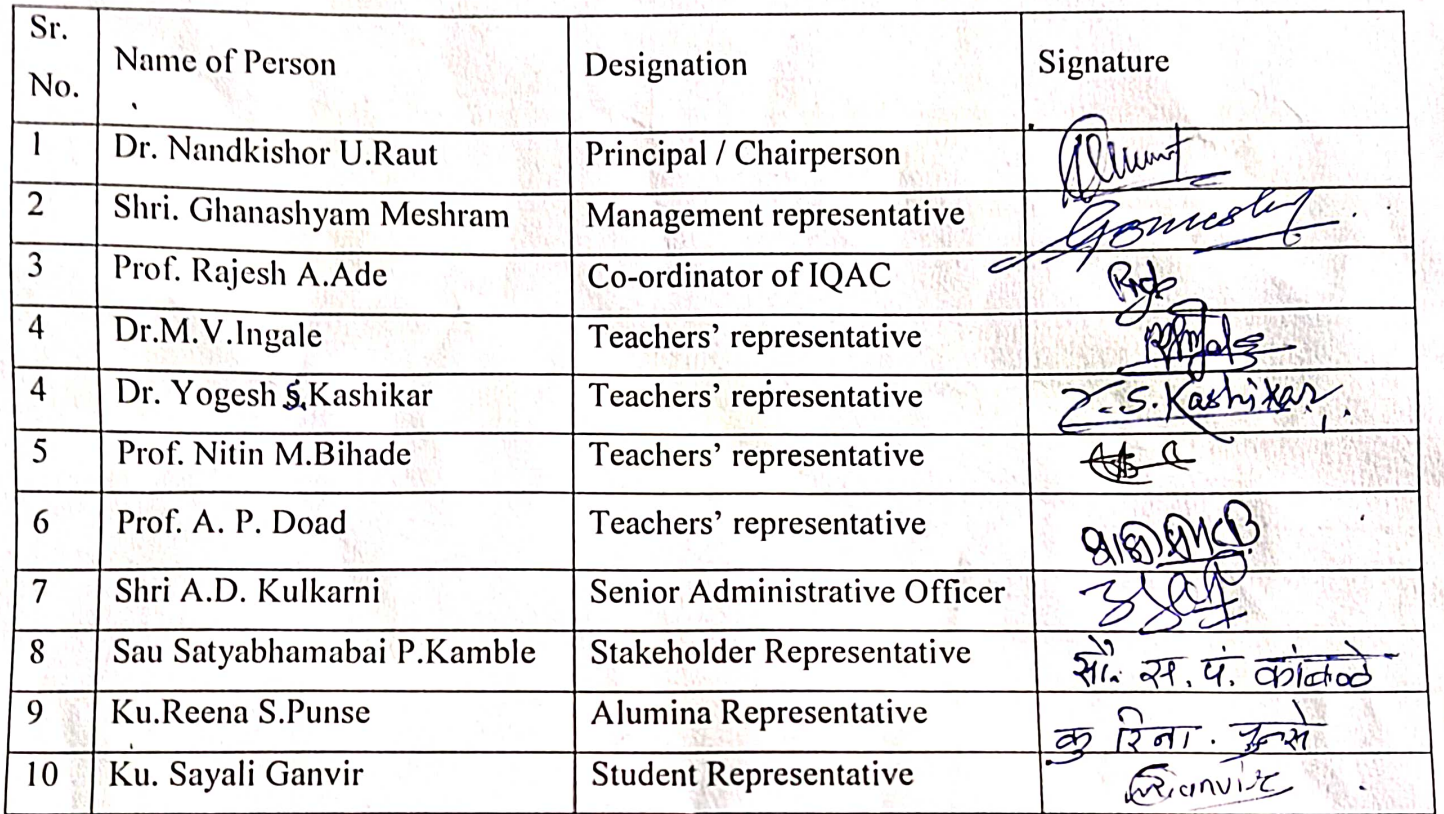 Sr. No. Name of Person Designation Signature
1 Dr. Nandkishor U.Raut Principal / Chairperson
2 Shri. Ghanashyam Meshram Management representative
3 Prof. Rajesh A.Ade Co-ordinator of IQAC
4 Dr.M.V.Ingale Teachers' representative
4 Dr. Yogesh S.Kashikar Teachers' representative Y.S.Kashikar
5 Prof. Nitin M.Bihade Teachers' representative
6 Prof. A. P. Doad Teachers' representative
7 Shri A.D. Kulkarni Senior Administrative Officer
8 Sau Satyabhamabai P.Kamble Stakeholder Representative सौ. स. पं. कांबळे
9 Ku.Reena S.Punse Alumina Representative कु रिना. पुन्से
10 Ku. Sayali Ganvir Student Representative